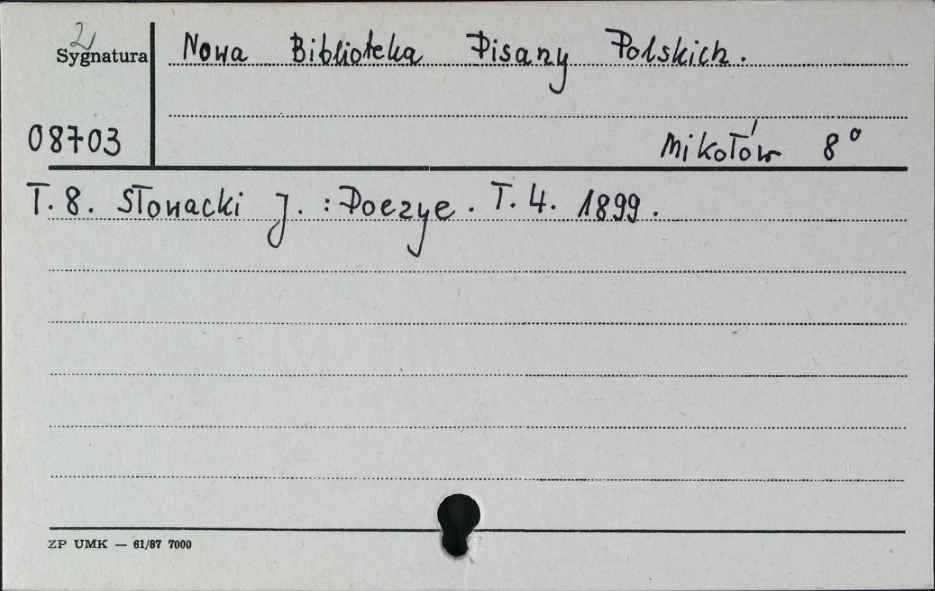 2
Sygnatura
Nowa Biblioteka Pisarzy Polskich.
08703
Mikołów 8°
T. 8. Słowacki J. : Poezye. T. 4. 1899.
ZP UMK — 61/67 7000